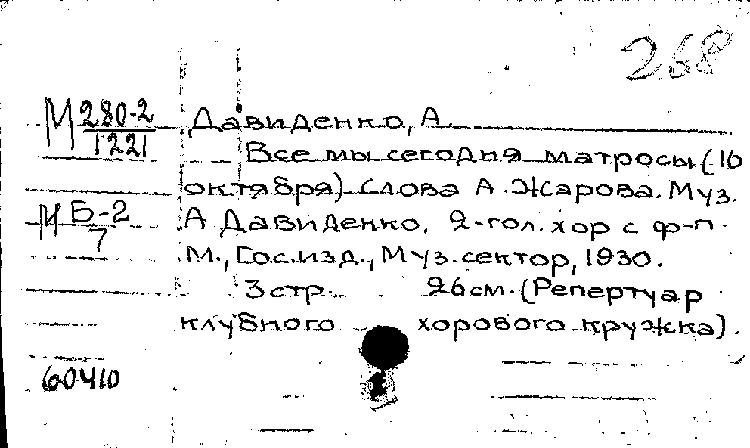 268
М 280-2 Давиденко, А.
1221
Все мы сегодня матросы. (10
октября) Слова А. Жарова. Муз.
М Б-2 А Давиденко. 2-гол. хор с ф-п.
7
М., Гос. изд., Муз. сектор, 1930.
3 стр. 26 см. (Репертуар
клубного хорового кружка).
60410